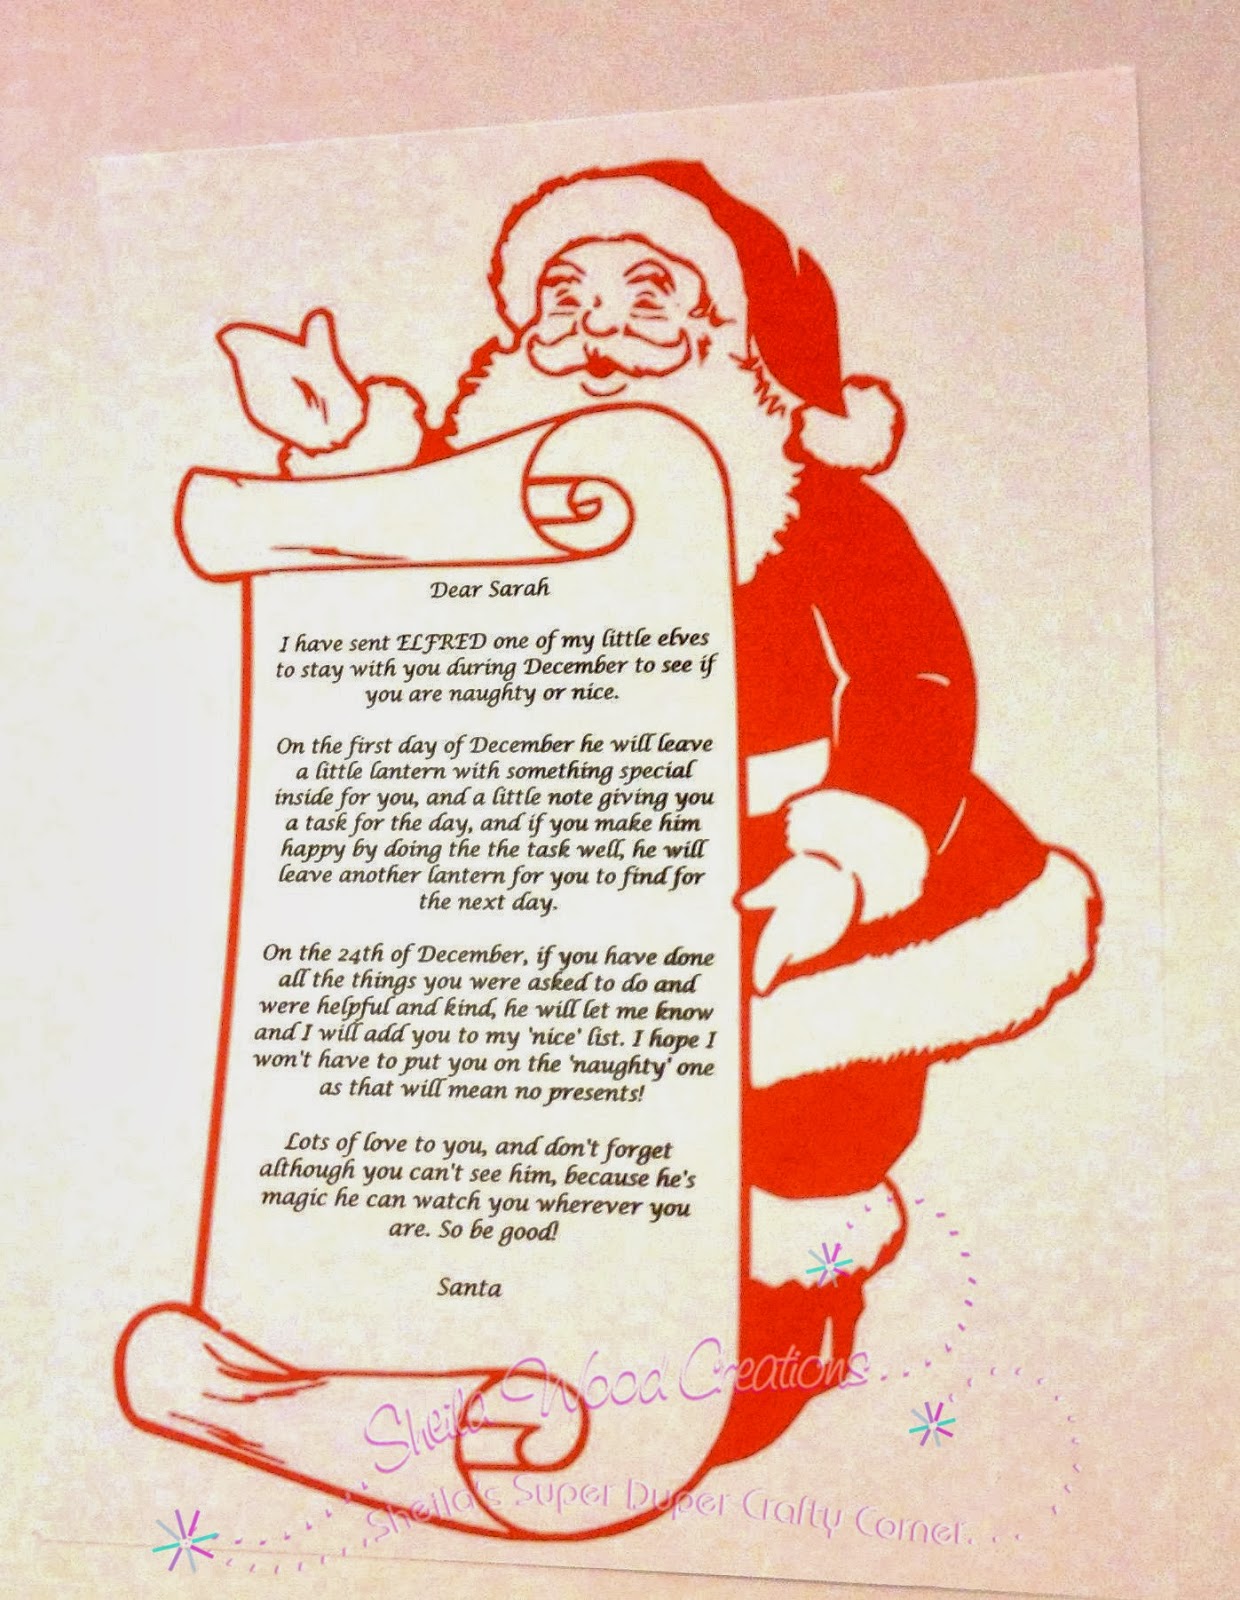 Dear Sarah
I have sent ELFRED one of my little elves
to stay with you during December to see if
you are naughty or nice.
On the first day of December he will leave
a little lantern with something special
inside for you, and a little note giving you
a task for the day, and if you make him
happy by doing the the task well, he will
leave another lantern for you to find for
the next day.
On the 24th of December, if you have done
all the things you were asked to do and
were helpful and kind, he will let me know
and I will add you to my 'nice' list. I hope I
won't have to put you on the 'naughty' one
as that will mean no presents!
Lots of love to you, and don't forget
although you can't see him, because he's
magic he can watch you wherever you
are. So be good!
Santa
Sheila Wood Creations...
Sheila's Super Duper Crafty Corner...